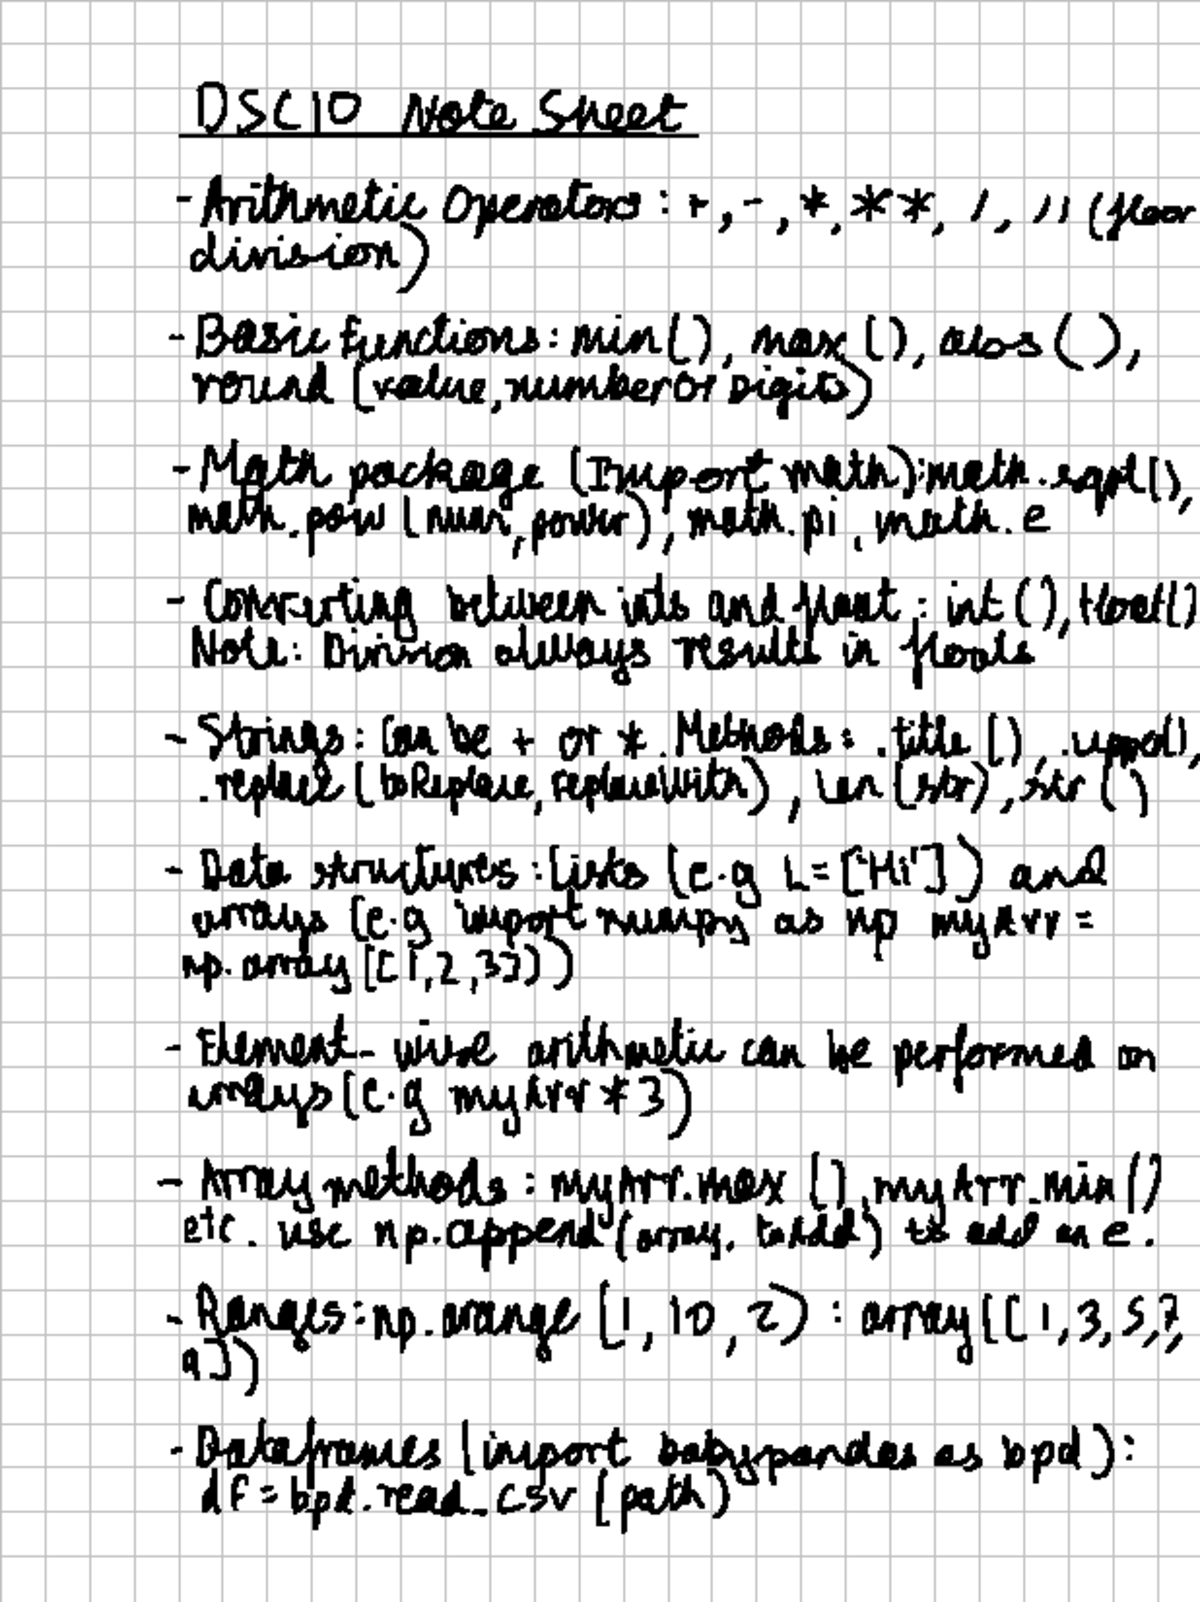 DSC10 Note Sheet
- Arithmetic Operators : +, -, *, **, /, // (floor
division)
- Basic functions: min(), max(), abs(),
round (value, numberOfDigits)
- Math package (Import math): math.sqrt(),
math.pow (num, power), math.pi, math.e
- Converting between ints and float : int(), float()
Note: Division always results in floats
- Strings: Can be + or *. Methods: .title(), .upper(),
.replace (toReplace, replaceWith), len(str), str()
- Data structures: lists (e.g L=['Hi']) and
arrays (e.g import numpy as np myArr =
np.array([1,2,3]))
- Element-wise arithmetic can be performed on
arrays (e.g myArr * 3)
- Array methods : myArr.max(), myArr.min()
etc. use np.append(array, toAdd) to add an e.
- Ranges: np.arange (1, 10, 2) : array([1,3,5,7,
9])
- Dataframes (import babypandas as bpd):
df = bpd.read_csv (path)